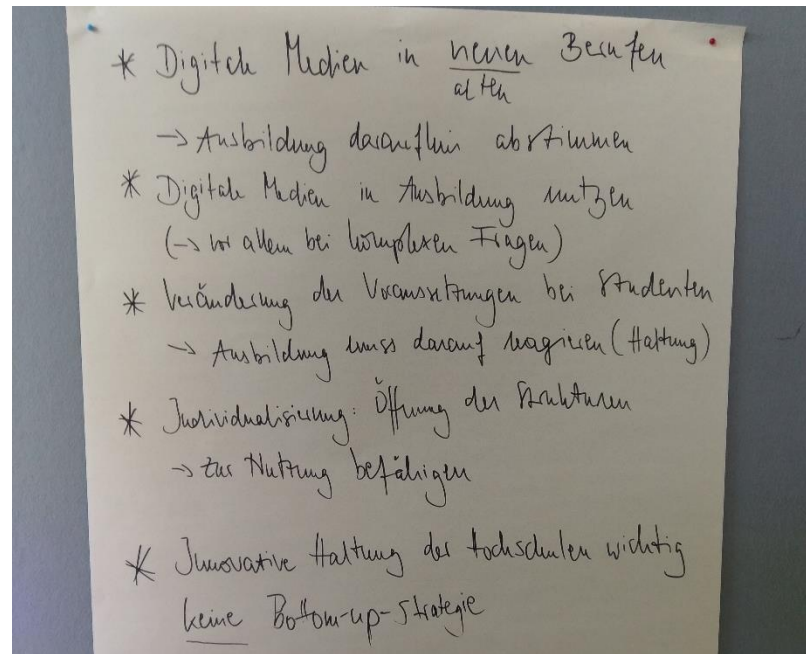 * Digitale Medien in neuen Berufen
alten
→ Ausbildung daraufhin abstimmen
* Digitale Medien in Ausbildung nutzen
(→ vor allem bei komplexen Fragen)
* Veränderung der Voraussetzungen bei Studenten
→ Ausbildung muss darauf reagieren (Haltung)
* Individualisierung: Öffnung der Strukturen
→ zur Nutzung befähigen
* Innovative Haltung der Hochschulen wichtig
keine Bottom-up-Strategie